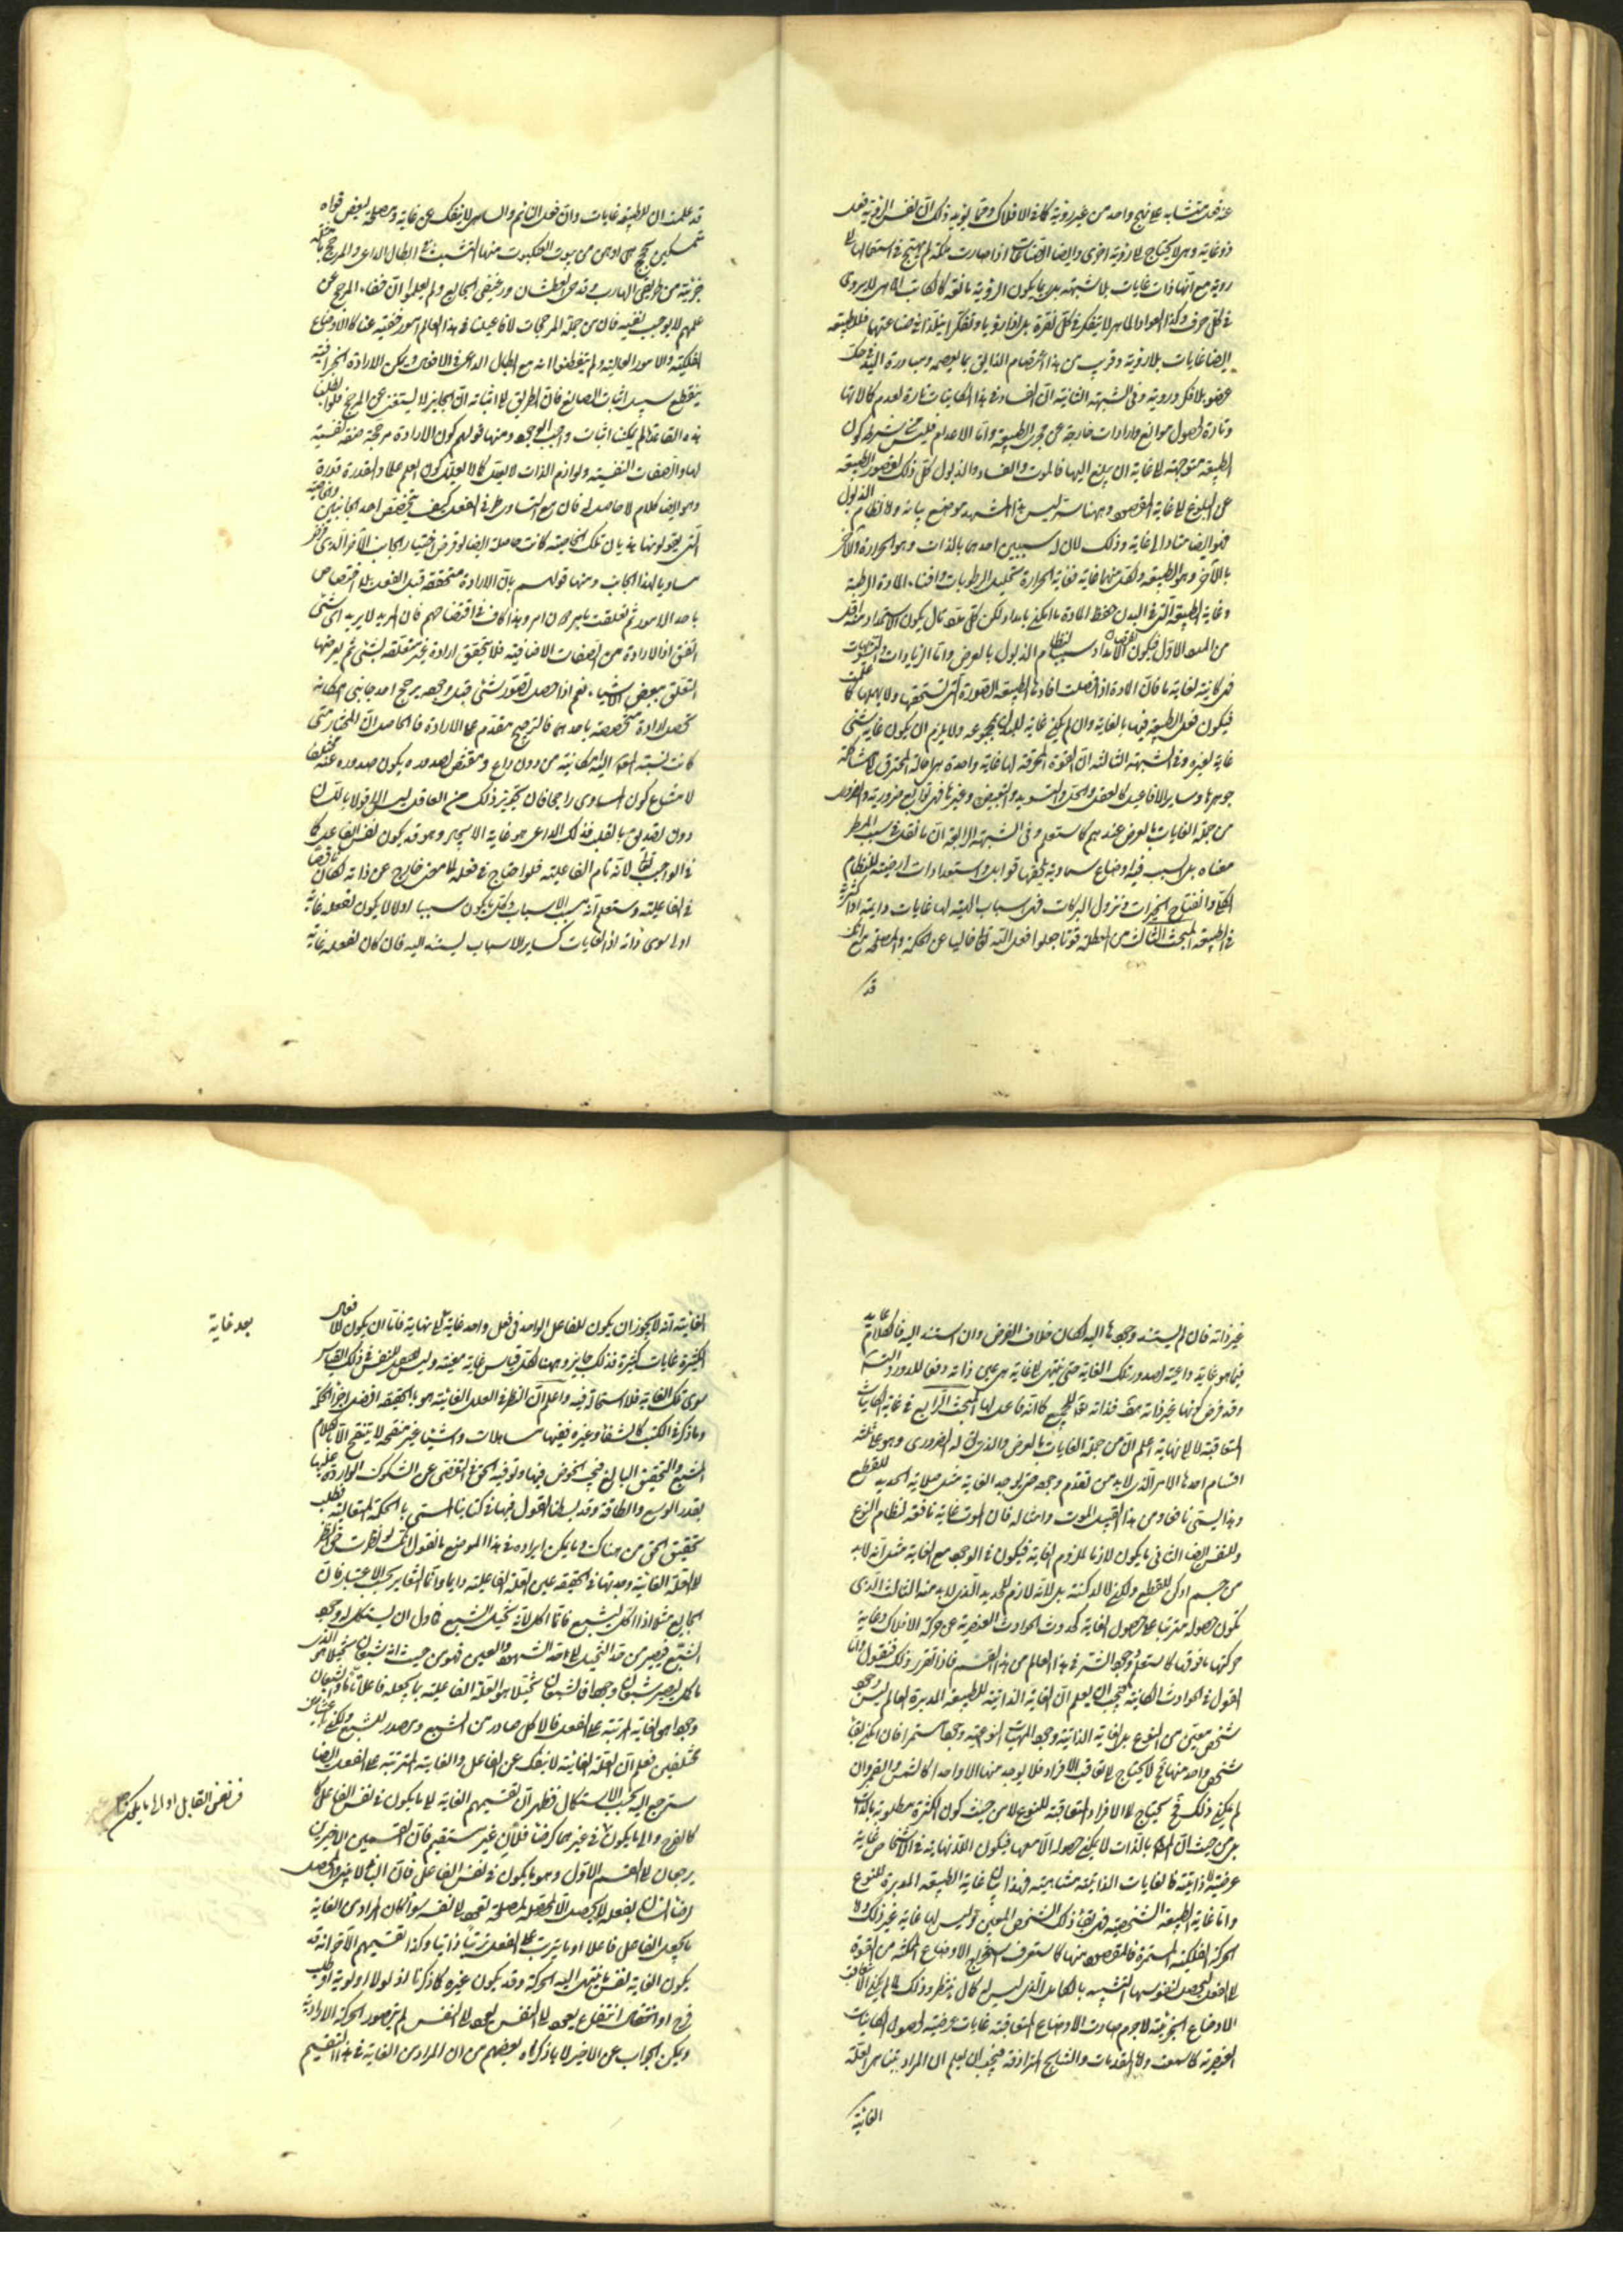 عنه فعل متشابه على نهج واحد من غير روية كما في الافلاك ومما يؤيد ذلك ان نفس الروية فعل
ذو غاية وهي لا يحتاج الى روية اخرى وايضا الصناعات اذا صارت ملكة لم يحتج في استعمالها الى
روية مع انها ذات غايات بلا شبهة بل ربما يكون الروية مانعة كالكاتب الماهر لا يروى
في كل حرف وكذا العواد الماهر لا يتفكر في كل نقرة بل اذا روى او تفكر تبلد في صناعتها فللطبيعة
ايضا غايات بلا روية وقريب من هذا اعتصام الزالق بما يعصمه ومبادرة اليد في حك
عضو بلا فكر وروية وفي الشبهة الثانية ان الفساد في هذا الكاينات تارة لعدم كمالاتها
وتارة لحصول موانع وارادات خارجة عن مجرى الطبيعة واما الاعدام فليس من شرط كون
الطبيعة متوجهة الى غاية ان يبلغ اليها فالموت والفساد والذبول كل ذلك لقصور الطبيعة
عن البلوغ الى غاية المقصود وههنا سر ليس هذا المشهد موضع بيانه واما نظام الذبول
فهو ايضا متأد الى غاية وذلك لان له سببين احدهما بالذات وهو الحرارة والآخر
بالآخر وهو الطبيعة ولكل منهما غاية فغاية الحرارة تحليل الرطوبات وافناء المادة الرطبة
وغاية الطبيعة التي في البدن حفظ المادة ما امكن بامداد لكن كل مدد تال يكون الاستمداد منه اقل
من المدد الاول فيكون نقصان الامداد سببا لنظام الذبول بالعرض واما الزيادات والتشويهات
فهي كاينة لغاية ما فان المادة اذا فضلت افادها الطبيعة الصورة التي تستحقها ولا يهملها كما علمت
فيكون فعل الطبيعة فيها بالغاية وان لم يكن غاية للبدن بمجموعه ولا يلزم ان يكون غاية شئ
غاية لغيره وفي الشبهة الثالثة ان القوة المحرقة لها غاية واحدة هي احالة المحترق الى مشاكلة
جوهرها وساير الافاعيل كالعقد والحل والتسويد والتبييض وغيرها فهي توابع ضرورية والضروري
من جملة الغايات بالعرض عندهم كما ستعلم وفي الشبهة الرابعة ان ما نقل في سبب المطر
معناه بل لسبب فيه اوضاع سماوية تلحقها قوابل واستعدادات ارضية للنظام
الكلي وانفتاح الخيرات ونزول البركات فهي اسباب الهية لها غايات دايمة او اكثرية
في الطبيعة المبحث الثالث من المعطلة قوما جعلوا فعل الله تعالى خاليا عن الحكمة والمصلحة مع انك
قد
قد علمت ان للطبيعة غايات وان فعل النايم والساهي لا ينفك عن غاية ومصلحة لبعض قواه
متمسكين بحجج هي اوهن من بيوت العنكبوت منها التشبث في ابطال الداعي والمرجح بامثلة
جزئية من طريقي الهارب وقدحي العطشان ورغيفي الجايع ولم يعلموا ان خفاء المرجح عن
علمهم لا يوجب نفيه فان من جملة المرجحات لافاعيلنا في هذا العالم امور خفية عنا كالاوضاع
الفلكية والامور العالية ولم يتفطنوا انه مع ابطال الداعي في الافعال وتمكين الارادة الجزافية
ينقطع سبيل اثبات الصانع فان الطريق الى اثباته ان الجايز لا يستغنى عن المرجح فلو ابطلنا
هذه القاعدة لم يمكننا اثبات واجب الوجود ومنها قولهم كون الارادة مرجحة صفة نفسية
لها والصفات النفسية ولوازم الذات لا يعلل كما لا يعلل كون العلم علما والقدرة قدرة
وهو ايضا كلام لا حاصل له فان مع التساوى طرفي الفعل كيف يتخصص احد الجانبين وخاصية
التي يقولونها هذيان تلك الخاصية كانت حاصلة ايضا لو فرض اختيار الجانب الآخر الذي فرض
مساويا لهذا الجانب ومنها قولهم بان الارادة متحققة قبل الفعل بلا اختصاص
باحد الامور ثم تعلقت بامر دون امر وهذا كاف في افتضاحهم فان المريد لا يريد اى شئ
اتفق اذ الارادة من الصفات الاضافية فلا يتحقق ارادة غير متعلقة بشئ ثم يعرضها
التعلق ببعض الاشياء نعم اذا حصل تصور شئ قبل وجوده يرجح احد جانبي امكانه
يحصل ارادة متخصصة باحدهما فالترجيح مقدم على الارادة فالحاصل ان المختار متى
كانت نسبة المعلول اليه امكانية من دون داع ومقتض لصدوره يكون صدوره عنه ممتنعا
لامتناع كون المساوى راجحا فان تجويز ذلك من العاقل ليس الا قولا باللسان
دون تصديق بالقلب فذلك الداعي هو غاية الايجاد وهو قد يكون نفس الفاعل كما
في الواجب تعالى لانه تام الفاعلية فلو احتاج في فعله الى معنى خارج عن ذاته لكان ناقصا
في الفاعلية وستعلم انه مسبب الاسباب وكل ما يكون سببا اولا لا يكون لفعله غاية
اولا سوى ذاته اذ الغايات كساير الاسباب يستند اليه فان كان لفعله غاية
غير ذاته فان لم يستند وجودها اليه لكان خلاف الفرض وان استند اليه فالكلام عايد
فيما هو غاية داعية لصدور تلك الغاية حتى ينتهي الى غاية هي عين ذاته دفعا للدور والتسلسل
وقد فرض كونها غير ذاته هف فذاته تعالى للجميع كما انه فاعل لها المبحث الرابع في غاية الكاينات
المتعاقبة لا الى نهاية اعلم ان من جملة الغايات بالعرض والذي يقال له الضروري وهو على ثلثة
اقسام احدها الامر الذي لابد من تقدم وجوده حتى يوجد الغاية مثل صلابة الحديد للقطع
وهذا يسمى نافعا ومن هذا القبيل الموت وامثاله فان الموت غاية نافعة لنظام النوع
وللنفس ايضا الثاني ما يكون لازما لملزوم الغاية فيكون في الوجود مع الغاية مثل انه لابد
من جسم ادكن للقطع ولكن لا لدكنته بل لانه لازم للحديد الذي لابد منه الثالث الذي
يكون حصوله مترتبا على حصول الغاية كحدوث الحوادث العنصرية عن حركة الافلاك وغاية
حركتها ما فوقها كما ستعلم وجود الشر في هذا العالم من هذا القسم فاذا تقرر ذلك فنقول واما
القول في الحوادث الكاينة فيجب ان يعلم ان الغاية الذاتية للطبيعة المدبرة للعالم ليس وجود
شخص معين من النوع بل الغاية الذاتية وجود الماهيات النوعية وجودا مستمرا فان امكن بقاء
شخص واحد منها فح لا يحتاج الى تعاقب الافراد فلا يوجد منها الا واحدا كالشمس والقمر وان
لم يمكن ذلك فح يحتاج الى الافراد المتعاقبة للنوع لا من حيث كون الكثرة مطلوبة بالذات
بل من حيث ان المط بالذات لا يمكن حصوله الا معها فيكون اللانهاية في الاشخاص غاية
عرضية لا ذاتية فالغايات الذاتية متناهية فهذا بيان غاية الطبيعة المدبرة للنوع
واما غاية الطبيعة الشخصية فهي بقاء ذلك الشخص المعين وليس لها غاية غير ذلك واما
الحركة الفلكية المستمرة فالمقصود منها كما ستعرف استخراج الاوضاع الممكنة من القوة
الى الفعل ليحصل لنفوسها التشبه بالكامل الذي ليس له كمال منتظر وذلك لما لم يمكن الا بتعاقب
الاوضاع الجزئية لا جرم صارت الاوضاع المتعاقبة غايات عرضية لحصول الكاينات
العنصرية كما سبق واما المقدمات والنتايج المترادفة فيجب ان يعلم ان المراد بتناهي العلة
الغائية
الغائية انه لا يجوز ان يكون للفاعل الواحد في فعل واحد غاية بلا نهاية فاما ان يكون للافعال
بعد غاية
الكثيرة غايات كثيرة فذلك جايز وههنا لكل قياس غاية معينة وليس للنفس في ذلك القياس
سوى تلك الغاية فلا استحالة فيه واعلم ان النظر في العلل الغائية هو بالحقيقة افضل اجزاء الحكمة
وما ذكر في الكتب كالشفاء وغيره ففيها مساهلات واشياء غير منقحة لا يتنقح الا بالكلام
المشبع والتحقيق البالغ فيجب الخوض فيها وتوفية الحق في التفصي عن الشكوك الواردة عليها
بقدر الوسع والطاقة وقد بسطنا القول فيها في كتابنا المسمى بالحكمة المتعالية فطلب
تحقيق الحق من هناك وما يمكن ايراده في هذا الموضع بالقول انك لو نظرت حق النظر
الى العلة الغائية وجدتها في الحقيقة عين العلة الفاعلية دايما وانما التغاير بحسب الاعتبار فان
الجايع مثلا اذا اكل ليشبع فانما اكل لانه تخيل الشبع فحاول ان يستكمل له وجود
الشبع فيصير من حد التخيل الى حد العين فهو من حيث انه شبعان تخيلا هو الذي
ياكل ليصير شبعان وجودا فالشبعان تخيلا هو العلة الفاعلية لما يجعله فاعلا تاما والشبعان
وجودا هو الغاية المرتبة على الفعل فالاكل صادر من الشبع ومصدر للشبع ولكن باعتبارين
مختلفين فعلم ان العلة الغائية لا ينفك عن الفاعل والغاية المترتبة على الفعل ايضا
سترجع اليه بحسب الاستكمال فظهر ان تقسيمهم الغاية الى ما يكون في نفس الفاعل كا
كالفرح والى ما يكون في غيرهما كرضا فلان غير مستقيم فان القسمين الاخيرين
يرجعان الى القسم الاول وهو ما يكون في نفس الفاعل فان الباني لا يبنى والمحصل
رضا انسان بفعله لا يحصل الا لمصلحة تعود الى نفسه سواء كان المراد من الغاية
ما يجعل الفاعل فاعلا او ما يترتب على الفعل ترتبا ذاتيا وكذا تقسيمهم الآخر انه قد
يكون الغاية نفس ما ينتهي اليه الحركة وقد يكون غيره كما ذكرنا اذ لولا اولوية او طلب
فرح او انتفاع يعود الى النفس لم يتصور الحركة الارادية
ويمكن الجواب عن الاخير لا بما ذكراه بعضهم من ان المراد من الغاية في هذا التقسيم